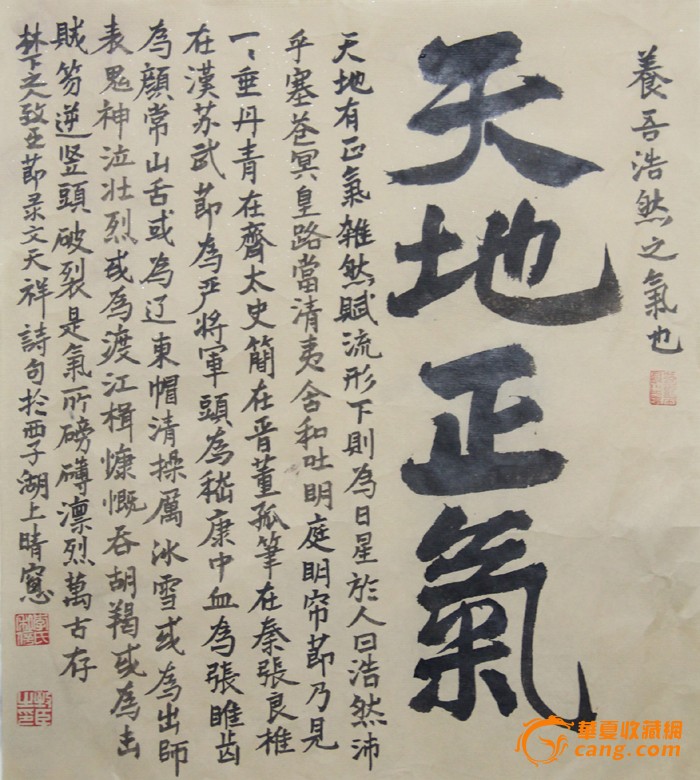 養吾浩然之氣也
天地正氣
天地有正氣雜然賦流形下則為日星於人曰浩然沛
乎塞苍冥皇路當清夷含和吐明庭明帘節乃見
一、垂丹青在齊太史簡在晋董孤筆在秦張良椎
在漢苏武節為严将軍頭為嵇康中血為張睢齿
為顔常山舌或為辽東帽清操厲冰雪或為出師
表鬼神泣壮烈或為渡江楫慷慨吞胡羯或為击
賊笏逆竖頭破裂是氣所磅礴凛烈萬古存
林下之致臣節录文天祥詩句於西子湖上晴窻
華夏收藏網
cang.com